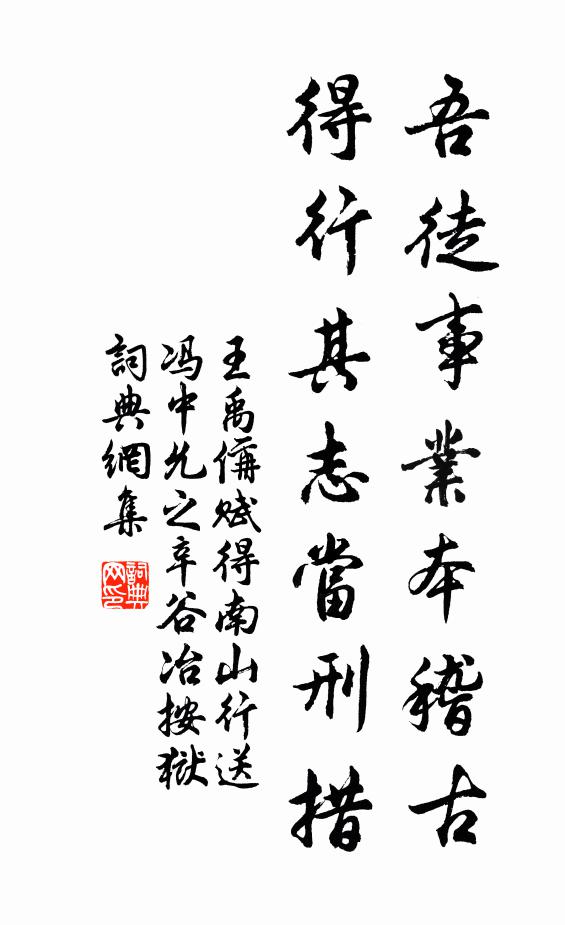 吾徒事業本稽古
得行其志當刑措
王禹偁赋得南山行送
冯中允之辛谷冶按獄
詞典網集
詞典網印